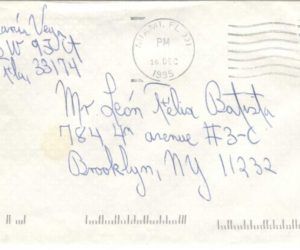 W 93 Ct
Fla, 33174
MIAMI, FL 331
PM
16 DEC
1995
Mr León Felix Batista
784 4th avenue #3-C
Brooklyn, NY 11232